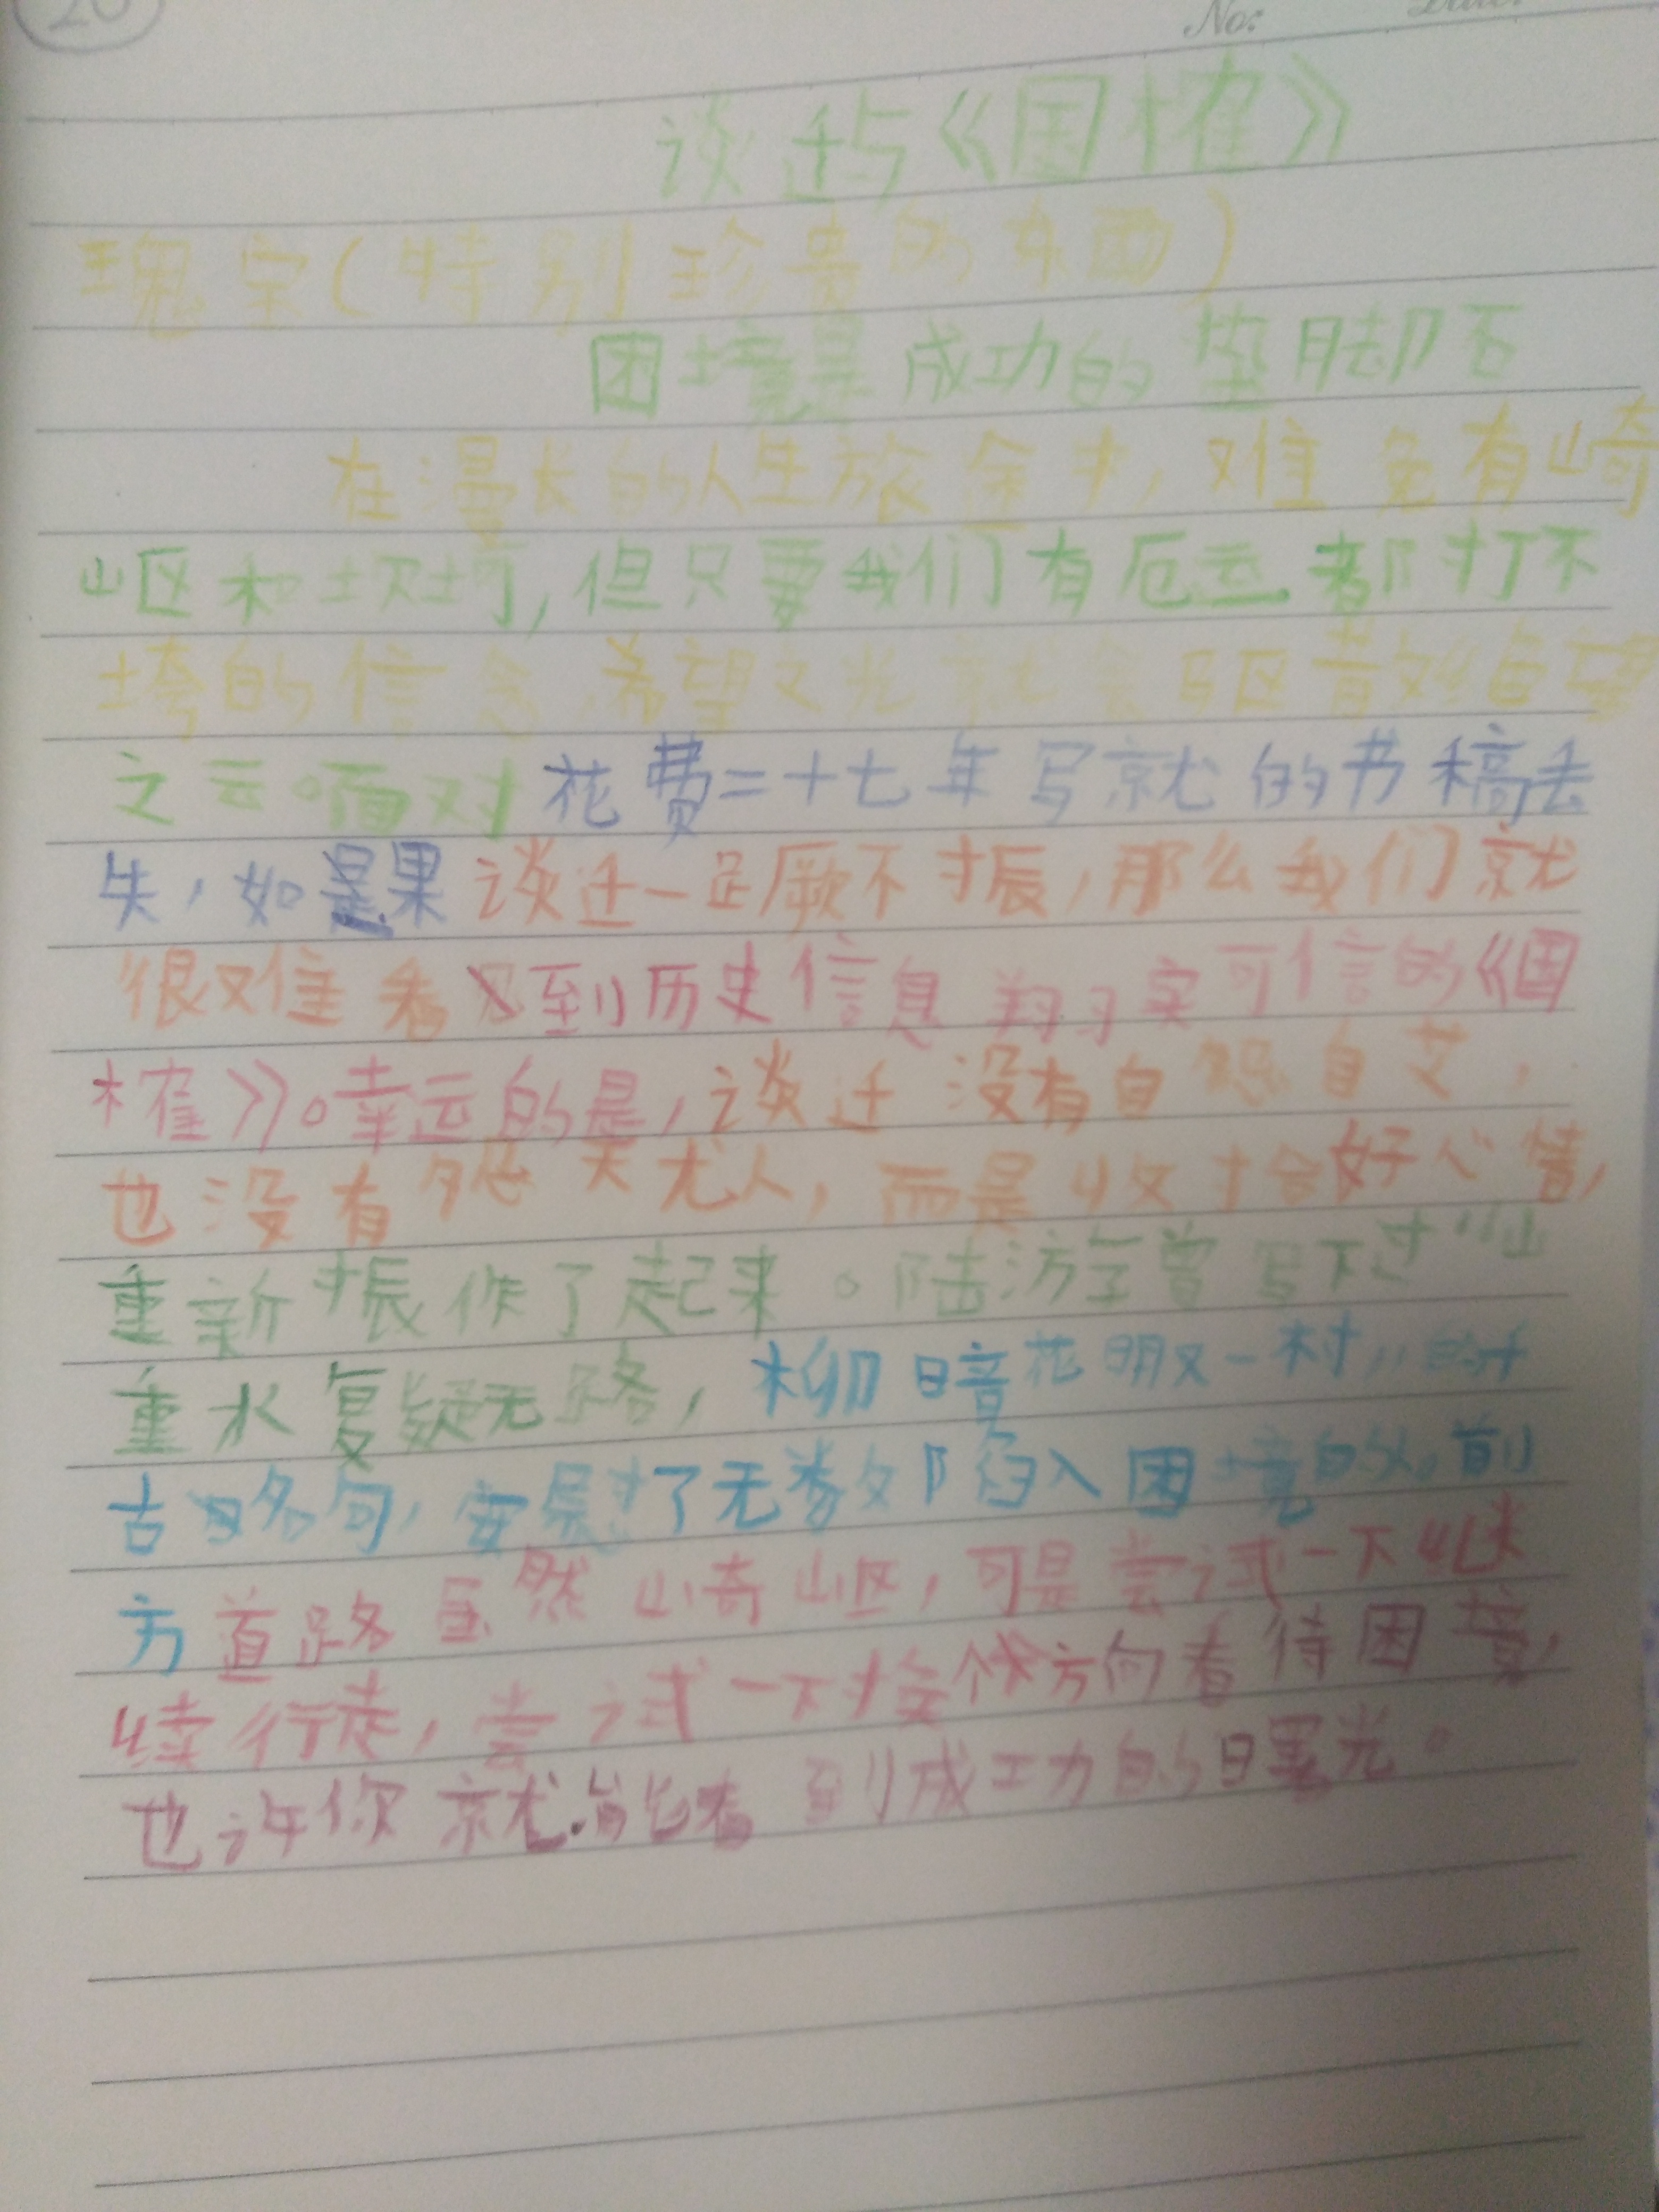 20
No: Date:
谈迁与《国榷》
瑰宝(特别珍贵的东西)
困境是成功的垫脚石
在漫长的人生旅途中,难免有崎
岖和坎坷,但只要我们有厄运都打不
垮的信念,希望之光就会驱散绝望
之云。面对花费二十七年写就的书稿丢
失,如果谈迁一蹶不振,那么我们就
很难看到历史信息翔实可信的《国
榷》。幸运的是,谈迁没有自怨自艾,
也没有怨天尤人,而是收拾好心情,
重新振作了起来。陆游曾写下过“山
重水复疑无路,柳暗花明又一村”的千
古名句,安慰了无数陷入困境的人。前
方道路虽然崎岖,可是尝试一下继
续行走,尝试一下换个方向看待困境,
也许你就能看到成功的曙光。